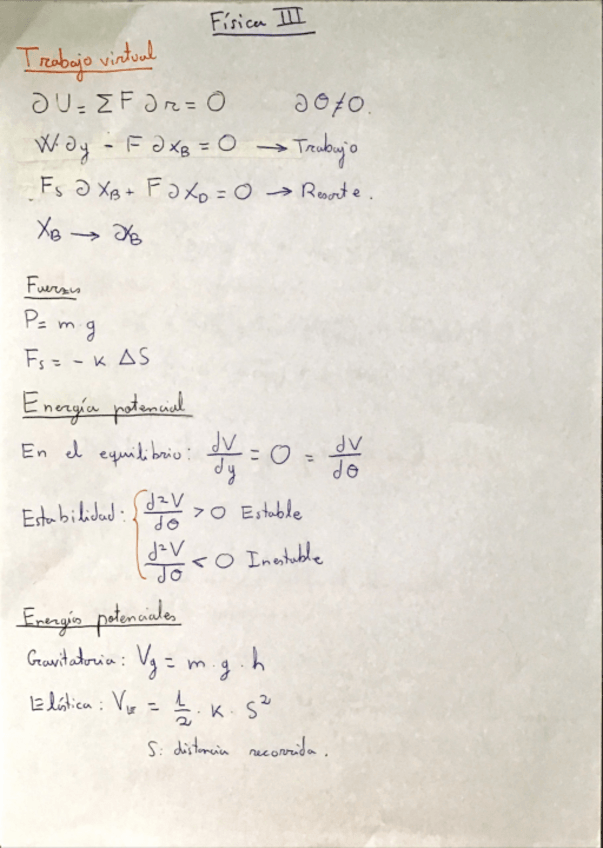 Física III
Trabajo virtual
∂U = ΣF ∂r = 0    ∂θ ≠ 0.
W·∂y - F ∂x_B = 0 → Trabajo
F_s ∂x_B + F ∂x_D = 0 → Resorte.
X_B → ∂x_B
Fuerzas
P = m·g
F_s = - k ΔS
Energía potencial
En el equilibrio: dV/dy = 0 = dV/dθ
Estabilidad: { d²V/dθ > 0 Estable
d²V/dθ < 0 Inestable
Energías potenciales
Gravitatoria: V_g = m·g·h
Elástica: V_E = 1/2 · k · S²
S: distancia recorrida.